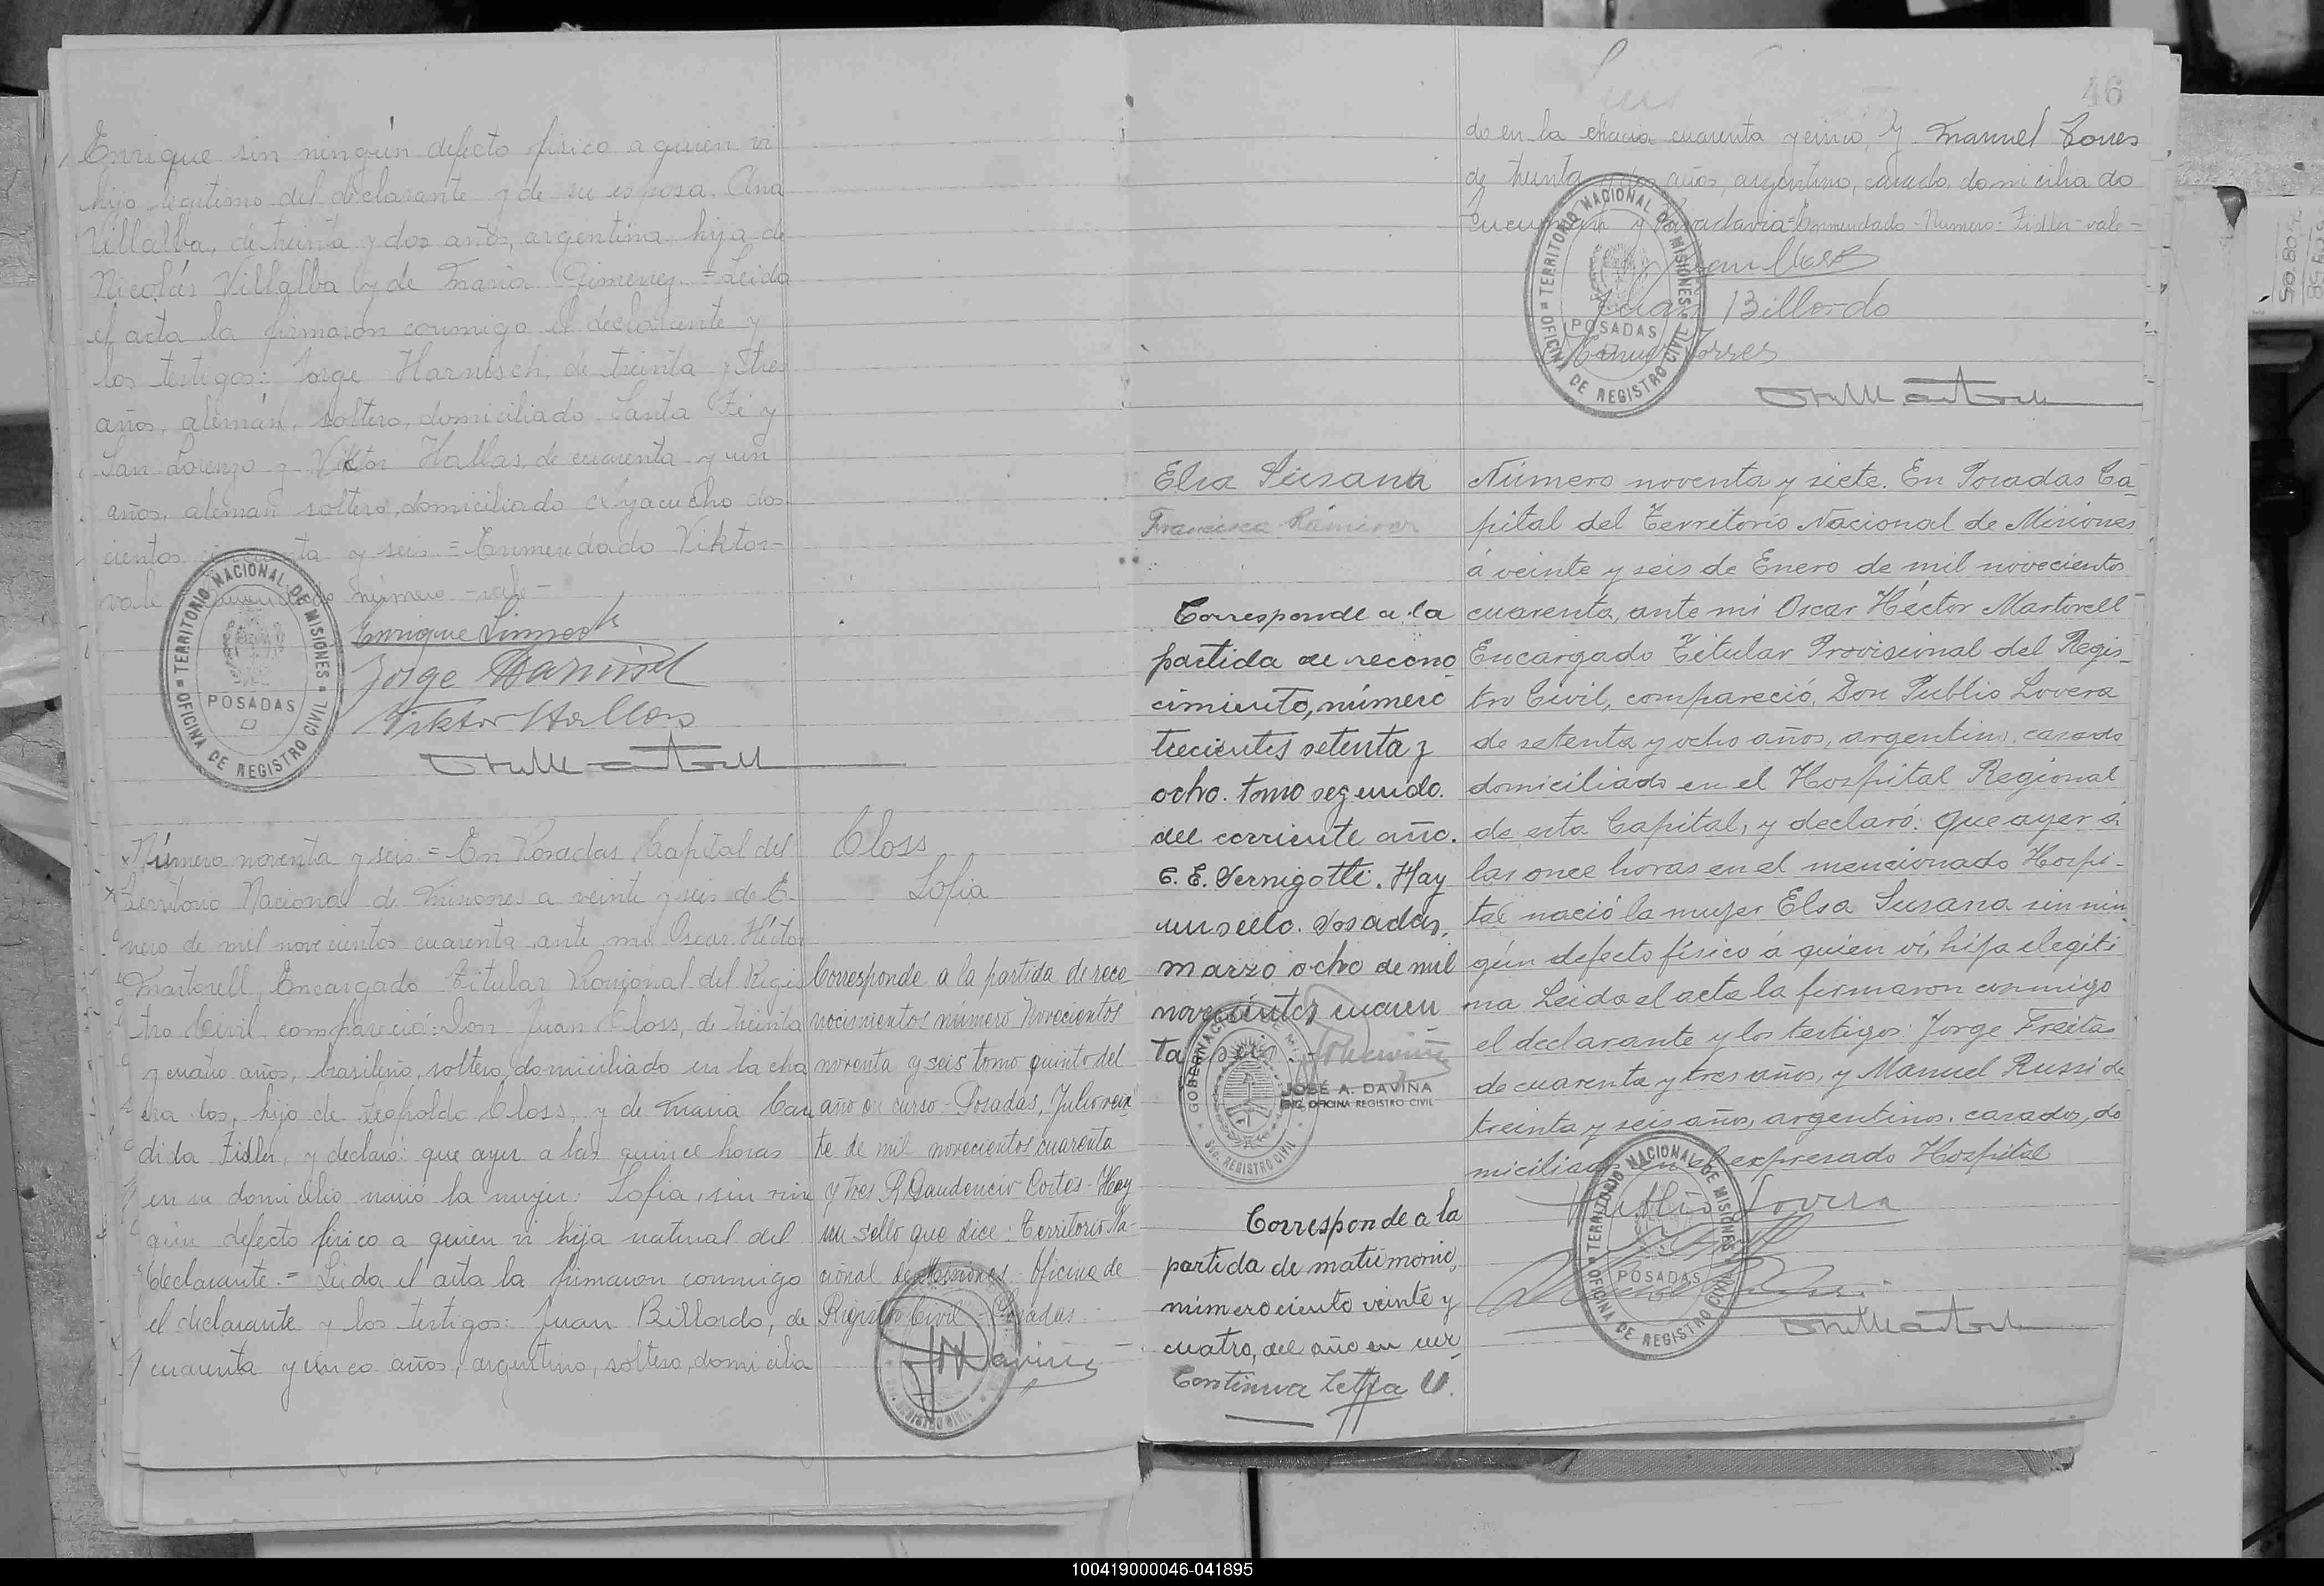 Enrique sin ningún defecto físico a quien vi
hijo legítimo del declarante y de su esposa, Ana
Villalba, de treinta y dos años, argentina, hija de
Nicolás Villalba y de María Gimenez = Leida
el acta la firmaron conmigo el declarante y
los testigos: Jorge Harnisch, de treinta y tres
años, alemán, soltero, domiciliado Santa Fé y
San Lorenzo y Viktor Hallas, de cuarenta y un
años, alemán soltero, domiciliado Ayacucho dos
cientos cincuenta y seis = Enmendado Viktor-
vale Enmendado número - vale -
Jorge Harnisch
Viktor Hallas
TERRITORIO NACIONAL DE MISIONES
POSADAS
OFICINA DE REGISTRO CIVIL
Número noventa y seis = En Posadas, Capital del
Territorio Nacional de Misiones a veinte y seis de E-
nero de mil novecientos cuarenta ante mi Oscar Héctor
Martorell, Encargado Titular Provisional del Regis
tro Civil, compareció: Don Juan Closs, de treinta
y cuatro años, brasileño, soltero, domiciliado en la cha
cra dos, hijo de Leopoldo Closs, y de María Can
dida Fidler, y declaró: que ayer a las quince horas
en su domicilio nació la mujer: Sofia, sin nin
gún defecto físico a quien vi hija natural del
declarante. = Leida el acta la firmaron conmigo
el declarante y los testigos: Juan Billordo, de
cuarenta y cinco años, argentino, soltero, domicilia
Closs
Sofia
Corresponde a la partida de reco-
nocimientos número Novecientos
noventa y seis tomo quinto del
año en curso - Posadas, Julio vein
te de mil novecientos cuarenta
y tres R. Gaudencio Cortes - Hay
un sello que dice: Territorio Na-
cional de Misiones. Oficina de
Registro Civil - Posadas.
46
do en la chacra cuarenta y cinco, y Manuel Torres
de treinta y dos años, argentino, casado, domiciliado
Tucumán y Rivadavia = Enmendado - Numero: Fidler - vale =
Juan Closs
Juan Billordo
Manuel Torres
TERRITORIO NACIONAL DE MISIONES
POSADAS
OFICINA DE REGISTRO CIVIL
Elsa Susana
Francisca Ramirez
Corresponde a la
partida de recono
cimiento, número
trecientos setenta y
ocho. tomo segundo.
del corriente año.
C. E. Vernigotti. Hay
un sello. Posadas,
marzo ocho de mil
novecientos cuaren
ta y seis.
JOSÉ A. DAVIÑA
ENC. OFICINA REGISTRO CIVIL
Corresponde a la
partida de matrimonio,
número ciento veinte y
cuatro, del año en cur
Continua Letra U.
Número noventa y siete. En Posadas Ca-
pital del Territorio Nacional de Misiones
á veinte y seis de Enero de mil novecientos
cuarenta, ante mi Oscar Héctor Martorell
Encargado Titular Provisional del Regis-
tro Civil, compareció, Don Publio Lovera
de setenta y ocho años, argentino, casado
domiciliado en el Hospital Regional
de esta Capital, y declaró: que ayer á
las once horas en el mencionado Hospi-
tal nació la mujer Elsa Susana sin nin
gún defecto físico á quien ví, hija elegíti
ma Leida el acta la firmaron conmigo
el declarante y los testigos: Jorge Freitas
de cuarenta y tres años, y Manuel Russi de
treinta y seis años, argentinos, casados, do
miciliados en el expresado Hospital
Publio Lovera
TERRITORIO NACIONAL DE MISIONES
POSADAS
OFICINA DE REGISTRO CIVIL
100419000046-041895